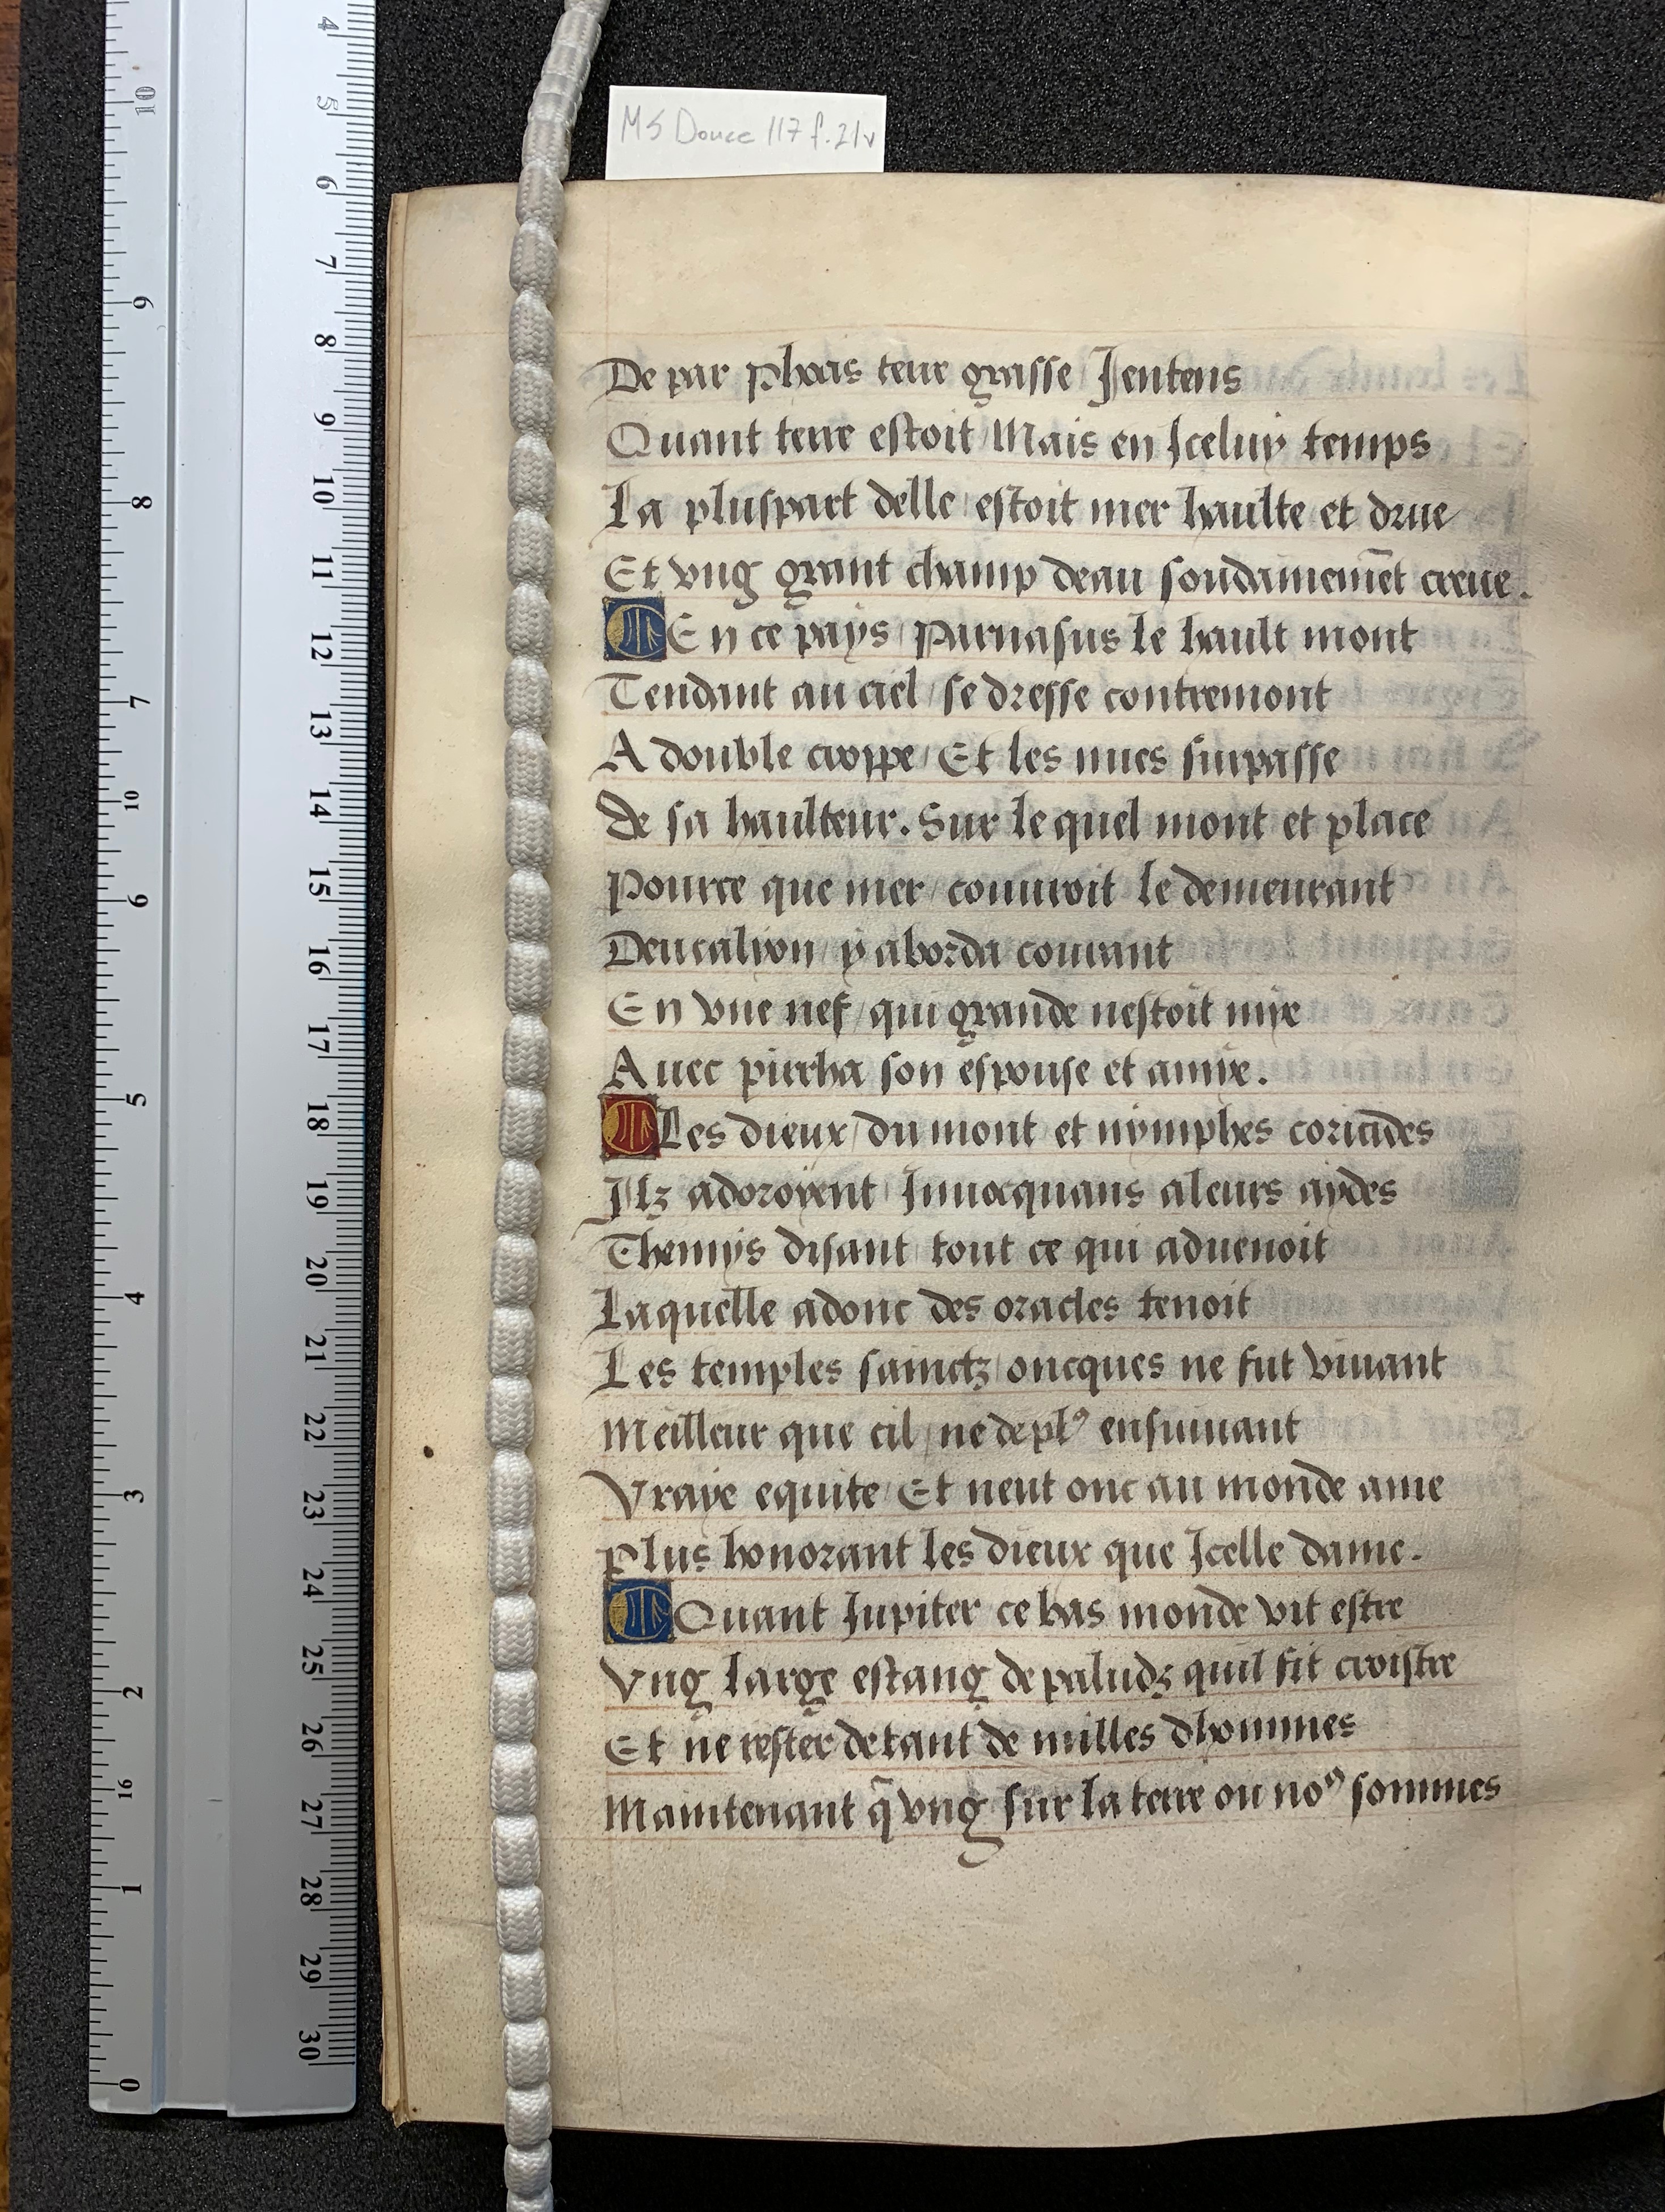 MS Douce 117 f. 21v
De par phocis terre grasse Jentens
Quant terre estoit / Mais en Jceluy temps
La pluspart delle / estoit mer haulte et drue
Et vng grant champ deau soudainemẽt creue .
¶ En ce pays / Parnasus le hault mont
Tendant au ciel / se dresse contremont
A double croppe / Et les nues surpasse
de sa haulteur . Sur le quel mont et place
Pource que mer / couuroit le demeurant
Deucalyon / y aborda courant
En vne nef / qui grande nestoit mye
Auec pirrha son espouse et amye .
¶ Les dieux / du mont et nymphes coricides
Jlz adoroyent / Jnuocquans a leurs aydes
Themys disant / tout ce qui aduenoit
Laquelle adonc des oracles tenoit
Les temples sainctz / oncques ne fut viuant
Meilleur que cil / ne de plꝰ ensuiuant
Vraye equite / Et neut onc au monde ame
Plus honorant les dieux que Jcelle dame .
¶ Quant Jupiter ce bas monde vit estre
Vng large estang de paludz quil fit croistre
Et ne rester de tant de milles dhommes
Maintenant q̃ vng sur la terre ou noꝰ sommes